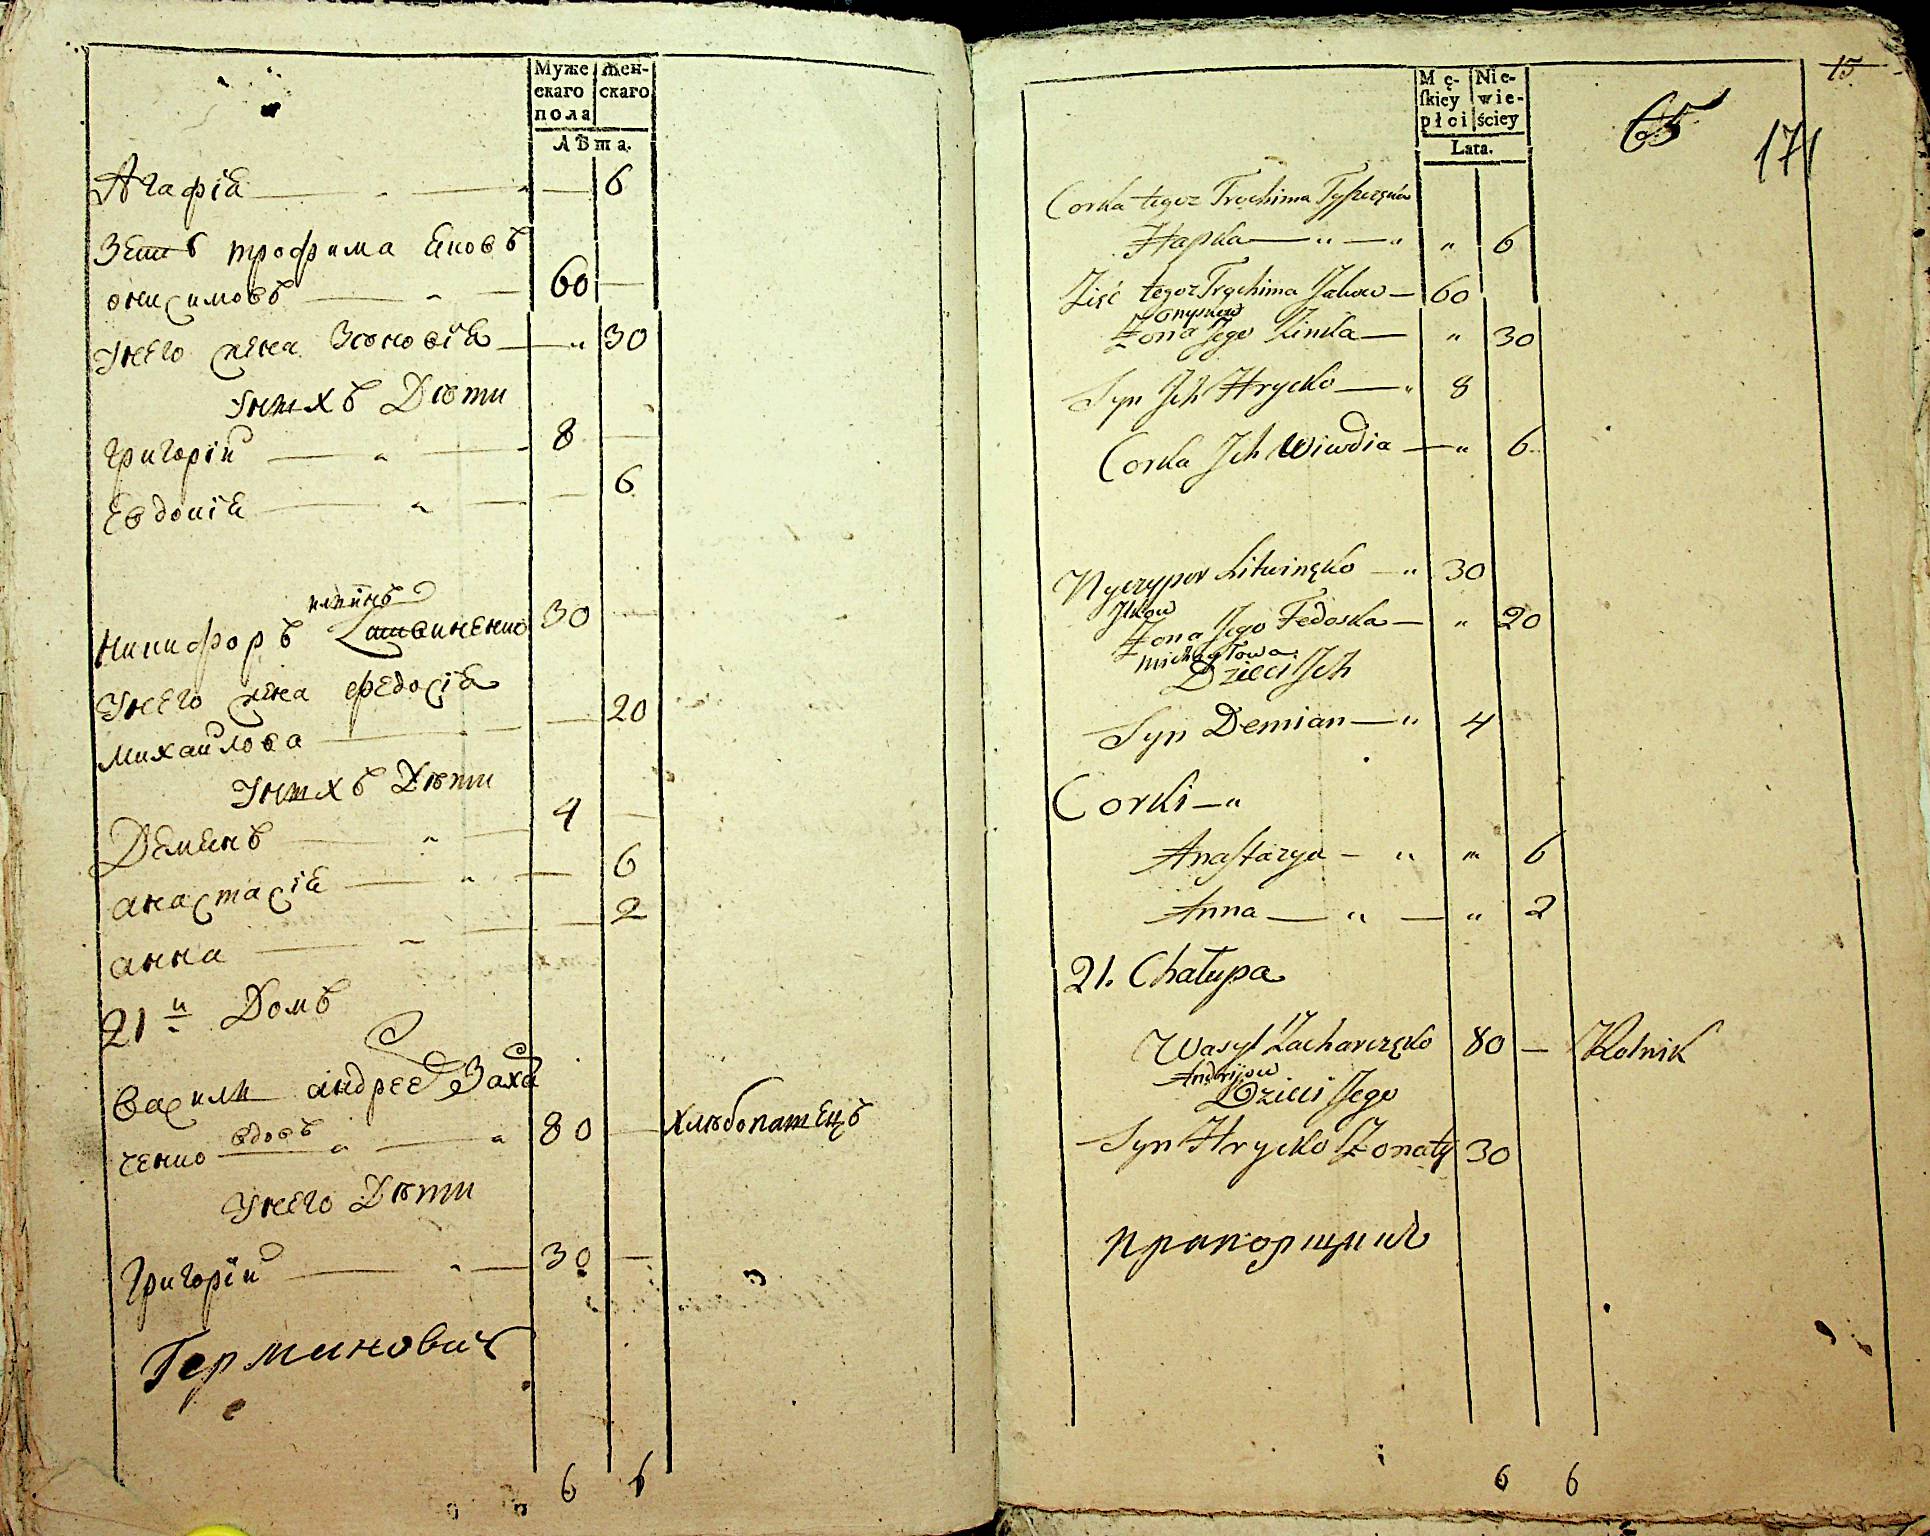 Муже Жен-
скаго скаго
пола
Лѣта.
Агафіа 6
Зеть трофима Яковъ
онисимовъ 60
Унего жена Зѣновіа 30
Унихъ Дѣти
Григоріи 8
Евдокіа 6
илиинъ
Никифоръ Литвиненко 30
Унего жена федосіа
михаилова 20
Унихъ Дѣти
Демянъ 4
анастасіа 6
анна 2
21 и Домъ
Василь андреевъ Заха
ченко вдовъ 80 Хлѣбопашецъ
Унего Дѣти
Григоріи 30
Германович
6 6
15
Mę- Nie-
ſkiey wie-
płci ściey
Lata.
65
171
Corka tegoz Trochima
Hapka 6
Zięć tegoz Trochima Jakow 60
Onyskow
Żona Jego Zinka 30
Syn Jch Hrycko 8
Corka Jch Wiwdia 6
Nyczypor Litwinęko 30
Jlkow
Żona Jego Fedoska 20
Michayłowa
Dzieci Jch
Syn Demian 4
Corki
Anaſtazya 6
Anna 2
21. Chałupa
Wasyl Zacharczęko 80 Rolnik
Andrijow
Dzieci Jego
Syn Hrycko Żonaty 30
прапорщикъ
6 6